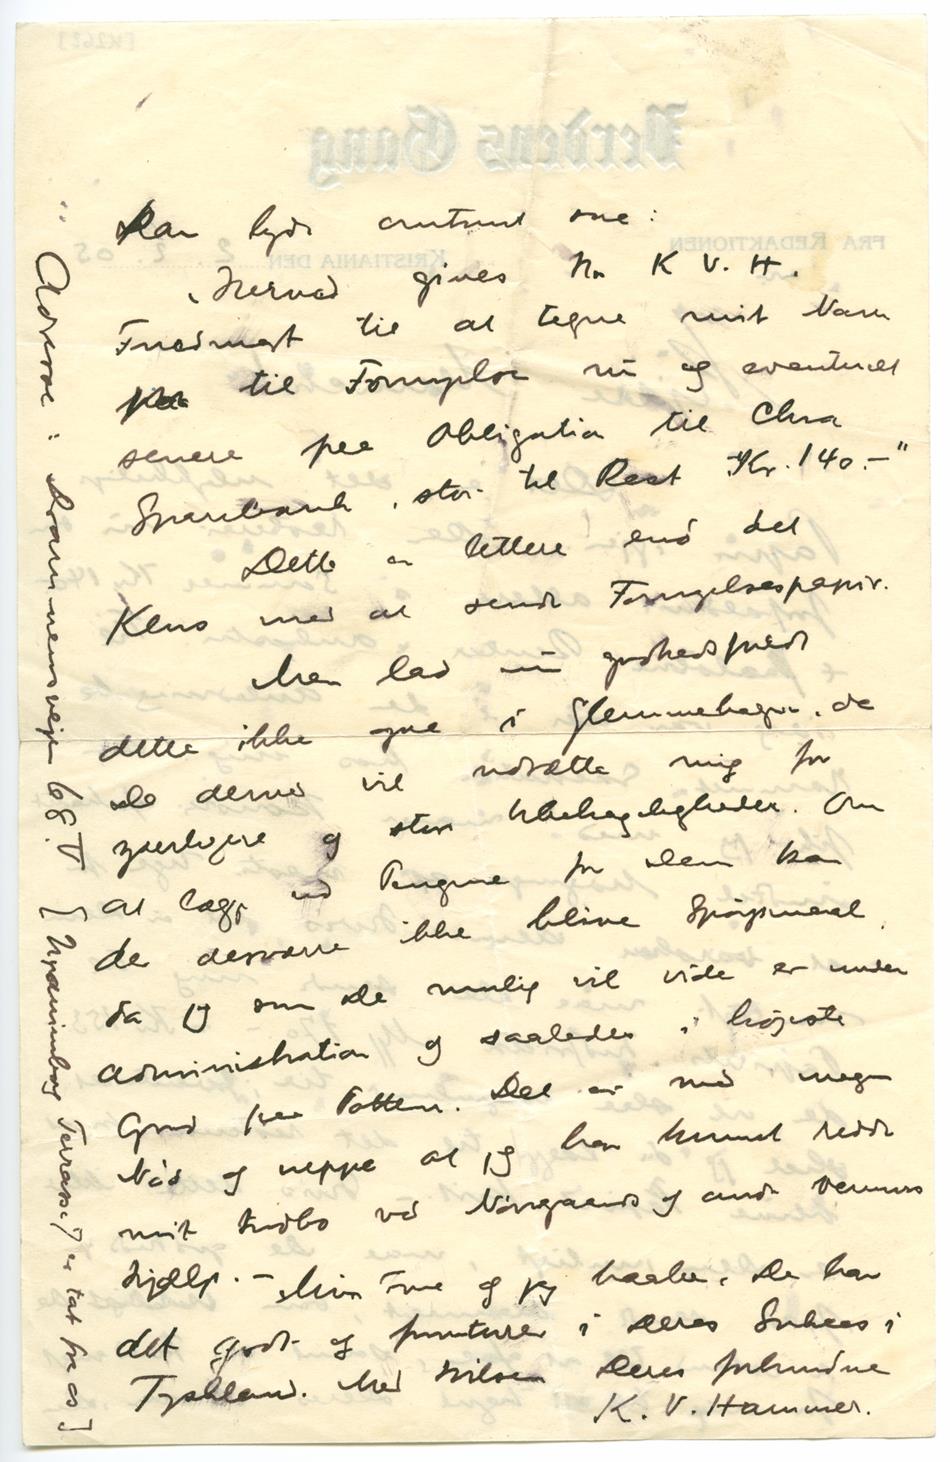 Kan lyde omtrent saa:
"Herved gives Hr K. V. H.
Fuldmagt til at tegne mit Navn
til Fornyelse nu og eventuelt
senere paa Obligation til Chra
Sparebank, stor til Rest Kr. 140.–"
Dette er lettere end det
Kluss med at sende Fornyelsespapir.
Men lad nu godhedsfuldt
dette ikke gaa i Glemmebogen, da
De derved vil udsætte mig for
yderligere og store Ubehageligheder. Om
at lægge ud Pengene for Dem kan
der desværre ikke blive Spørgsmaal,
da jeg som De mulig vil vide er under
Administration og saaledes i højeste
Grad paa Potten. Det er med megen
Nød og neppe at jeg har kunnet redde
mit Indbo ved Nørregaards og andre Venners
Hjælp. – Min Frue og jeg haaber, De har
det godt og i Deres Succes i
Tyskland. Med Hilsen Deres forbundne
K. V. Hammer.
Adresse: Drammensvejen 68.V [Uranienborg Terrasse 7 er tat fra os]
Verdens Gang
FRA REDAKTIONEN
KRISTIANIA DEN 2. 3. 05